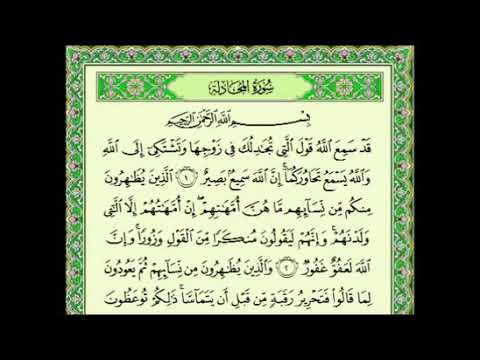 سُورَةُ المُجَادلة
بِسْمِ اللَّهِ الرَّحْمَٰنِ الرَّحِيمِ
قَدْ سَمِعَ اللَّهُ قَوْلَ الَّتِي تُجَادِلُكَ فِي زَوْجِهَا وَتَشْتَكِي إِلَى اللَّهِ
وَاللَّهُ يَسْمَعُ تَحَاوُرَكُمَا ۚ إِنَّ اللَّهَ سَمِيعٌ بَصِيرٌ ١ الَّذِينَ يُظَٰهِرُونَ
مِنكُم مِّن نِّسَآئِهِم مَّا هُنَّ أُمَّهَٰتِهِمْ ۖ إِنْ أُمَّهَٰتُهُمْ إِلَّا الَّٰٓئِي
وَلَدْنَهُمْ ۚ وَإِنَّهُمْ لَيَقُولُونَ مُنكَرًا مِّنَ الْقَوْلِ وَزُورًا ۚ وَإِنَّ
اللَّهَ لَعَفُوٌّ غَفُورٌ ٢ وَالَّذِينَ يُظَٰهِرُونَ مِن نِّسَآئِهِمْ ثُمَّ يَعُودُونَ
لِمَا قَالُوا فَتَحْرِيرُ رَقَبَةٍ مِّن قَبْلِ أَن يَتَمَآسَّا ۚ ذَٰلِكُمْ تُوعَظُونَ